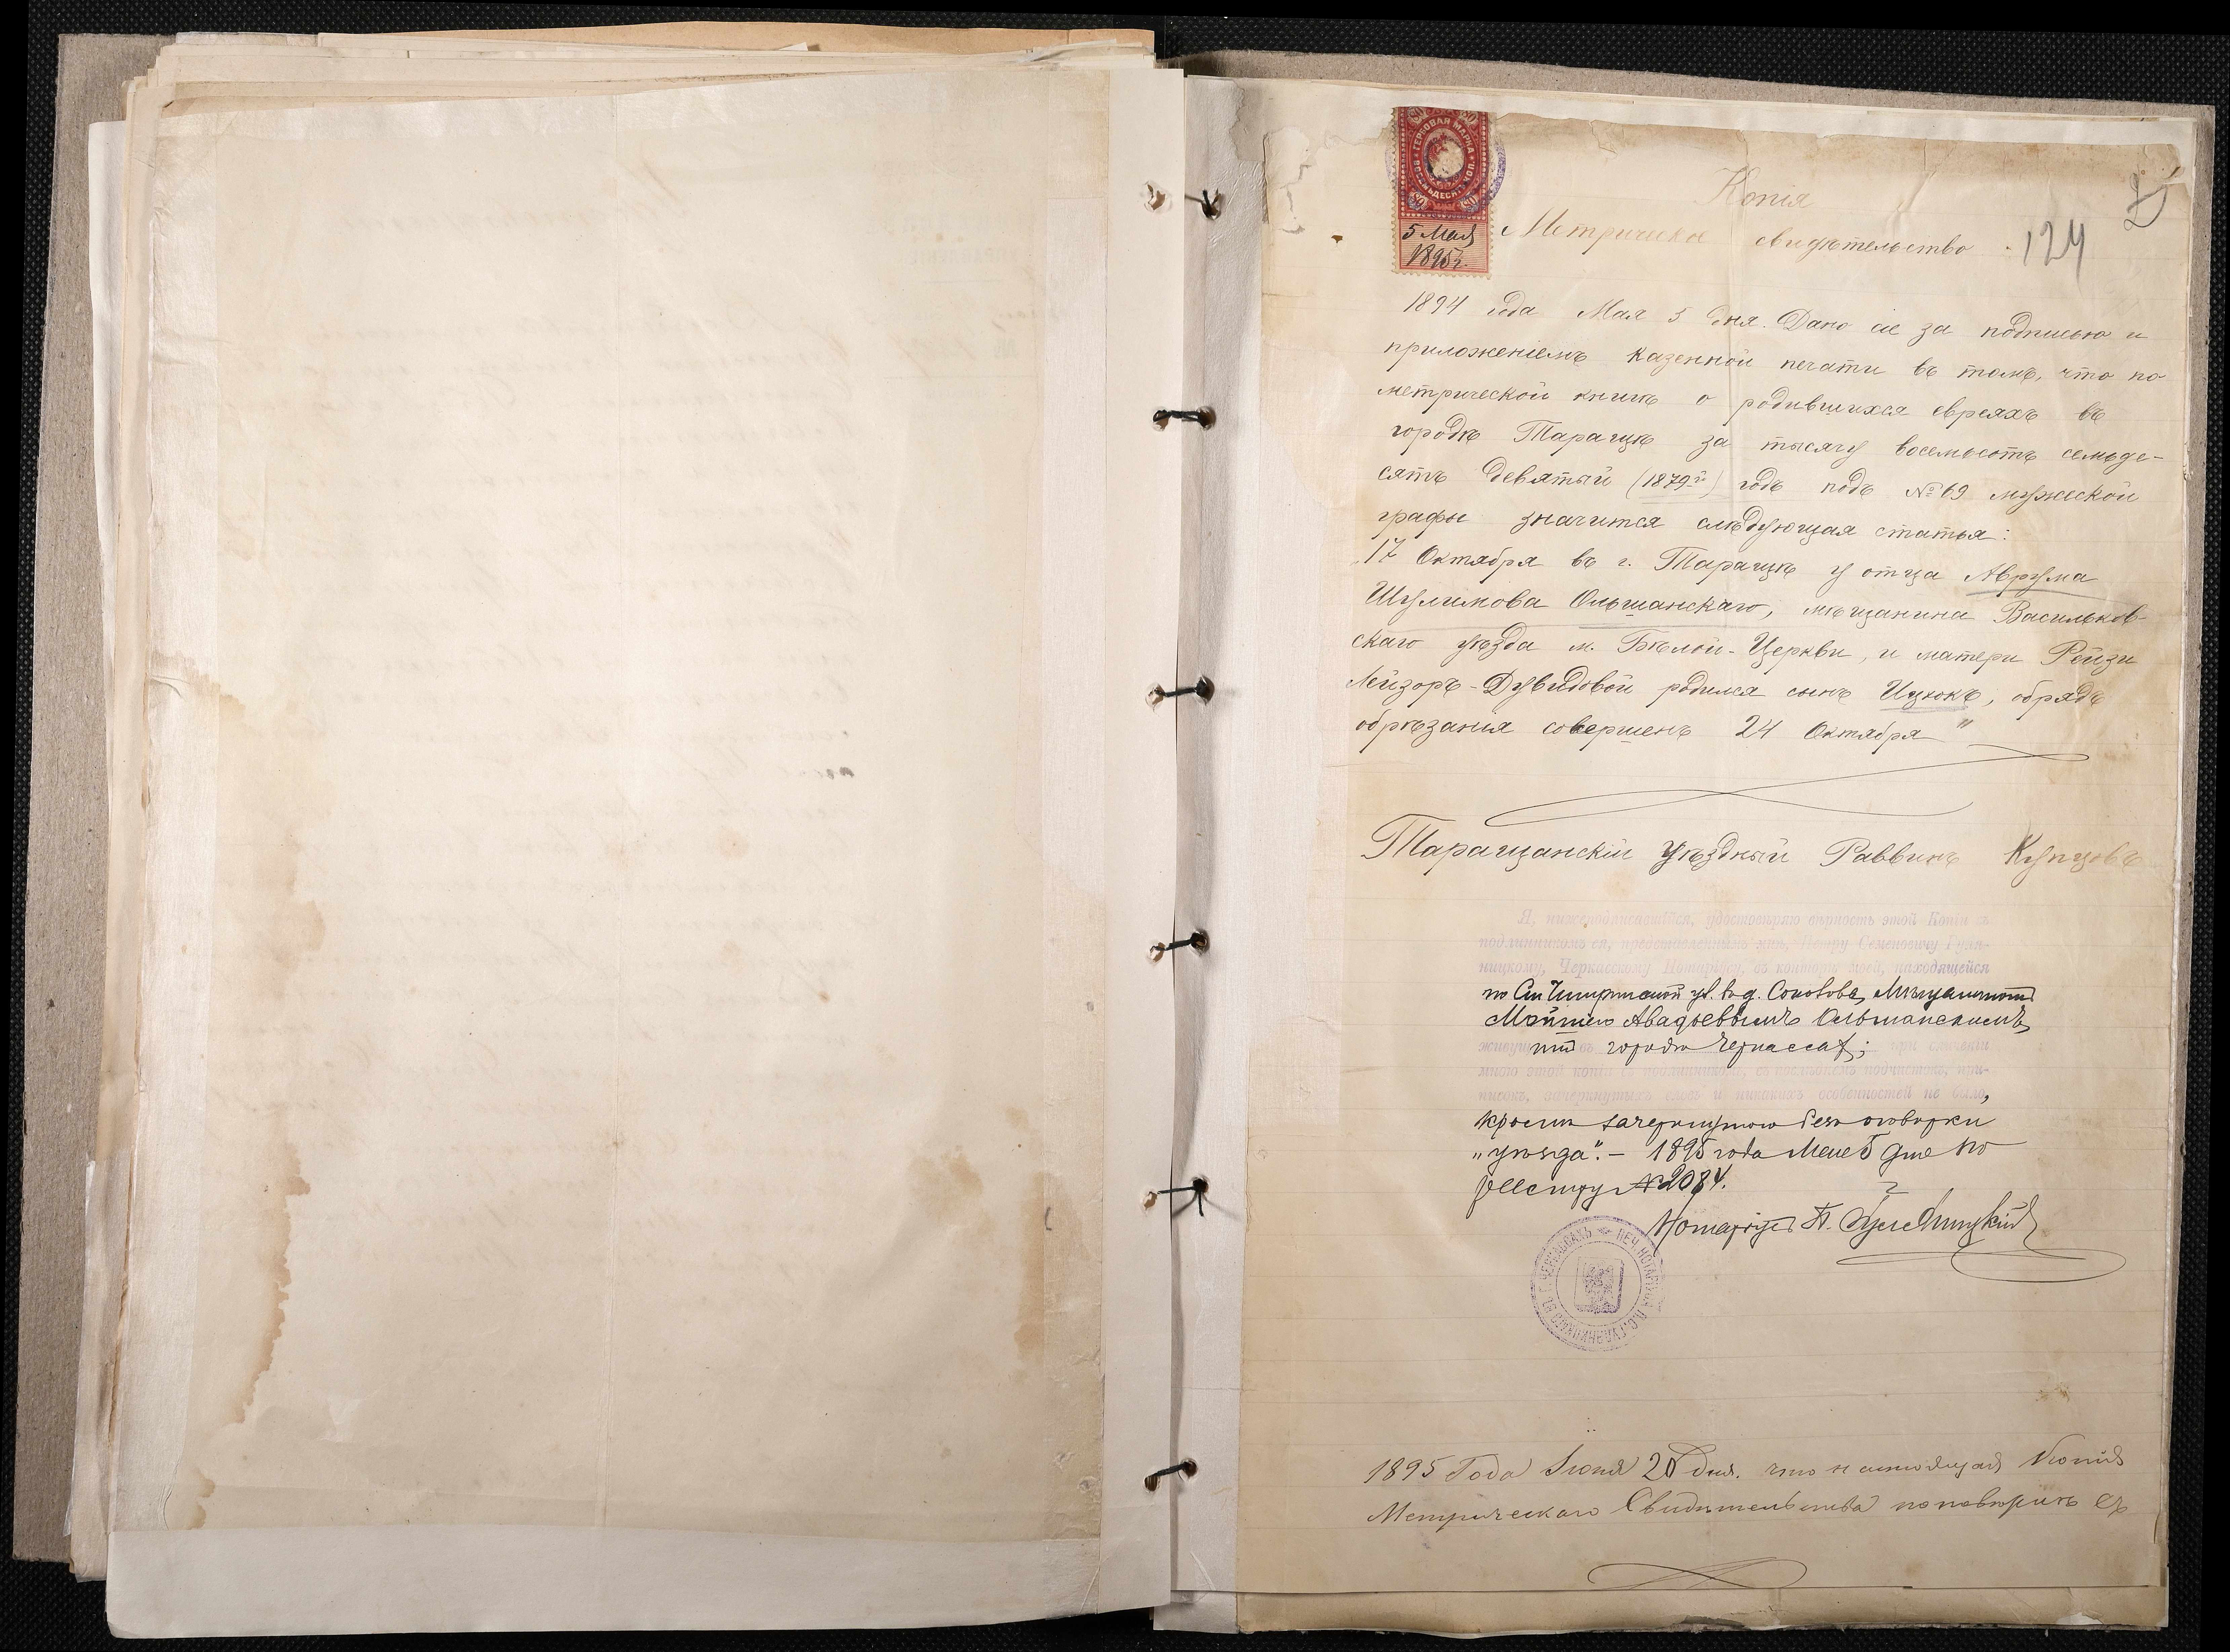 ГЕРБОВАЯ МАРКА
ВОСЕМЬДЕСЯТ КОП.
80
5 Мая
1895 г.
Копія
Метрическое свидѣтельство.
124
1894 года Мая 5 дня. Дано сіе за подписью и
приложеніемъ казенной печати въ томъ, что по
метрической книгѣ о родившихся евреяхъ въ
городѣ Таращѣ за тысячу восемьсотъ семьде-
сятъ девятый (1879й) годъ подъ № 69 мужеской
графы значится слѣдующая статья:
17 Октября въ г. Таращѣ у отца Аврума
Шулимова Ольшанскаго, мѣщанина Васильков-
скаго уѣзда м. Бѣлой-Церкви, и матери Рейзи
Лейзоръ-Дувидовой родился сынъ Ицхокъ, обрядъ
обрѣзанія совершенъ 24 Октября"
Таращанскій Уѣздный Раввинъ Купцовъ
Я, нижеподписавшійся, удостовѣряю вѣрность этой Копіи съ
подлинникомъ ея, представленнымъ мнѣ, Петру Семеновичу Гуля-
ницкому, Черкасскому Нотаріусу, въ конторѣ моей, находящейся
по ул. въ д. Соколова, Мѣщаниномъ
Ольшанскимъ,
живущимъ въ городѣ Черкассахъ; при сличеніи
мною этой копіи съ подлинникомъ, въ послѣднемъ подчистокъ, при-
писокъ, зачеркнутыхъ словъ и никакихъ особенностей не было,
кромѣ зачеркнутаго безъ оговорки
„уѣзда". — 1895 года Мая 5 дня по
реестру № 2084.
Нотаріусъ П. Гуляницкій
ПЕЧ. НОТАРІУСА П.С. ГУЛЯНИЦКАГО ВЪ Г. ЧЕРКАССАХЪ
1895 Года Іюня дня. что настоящая Копія
Метрическаго Свидѣтельства